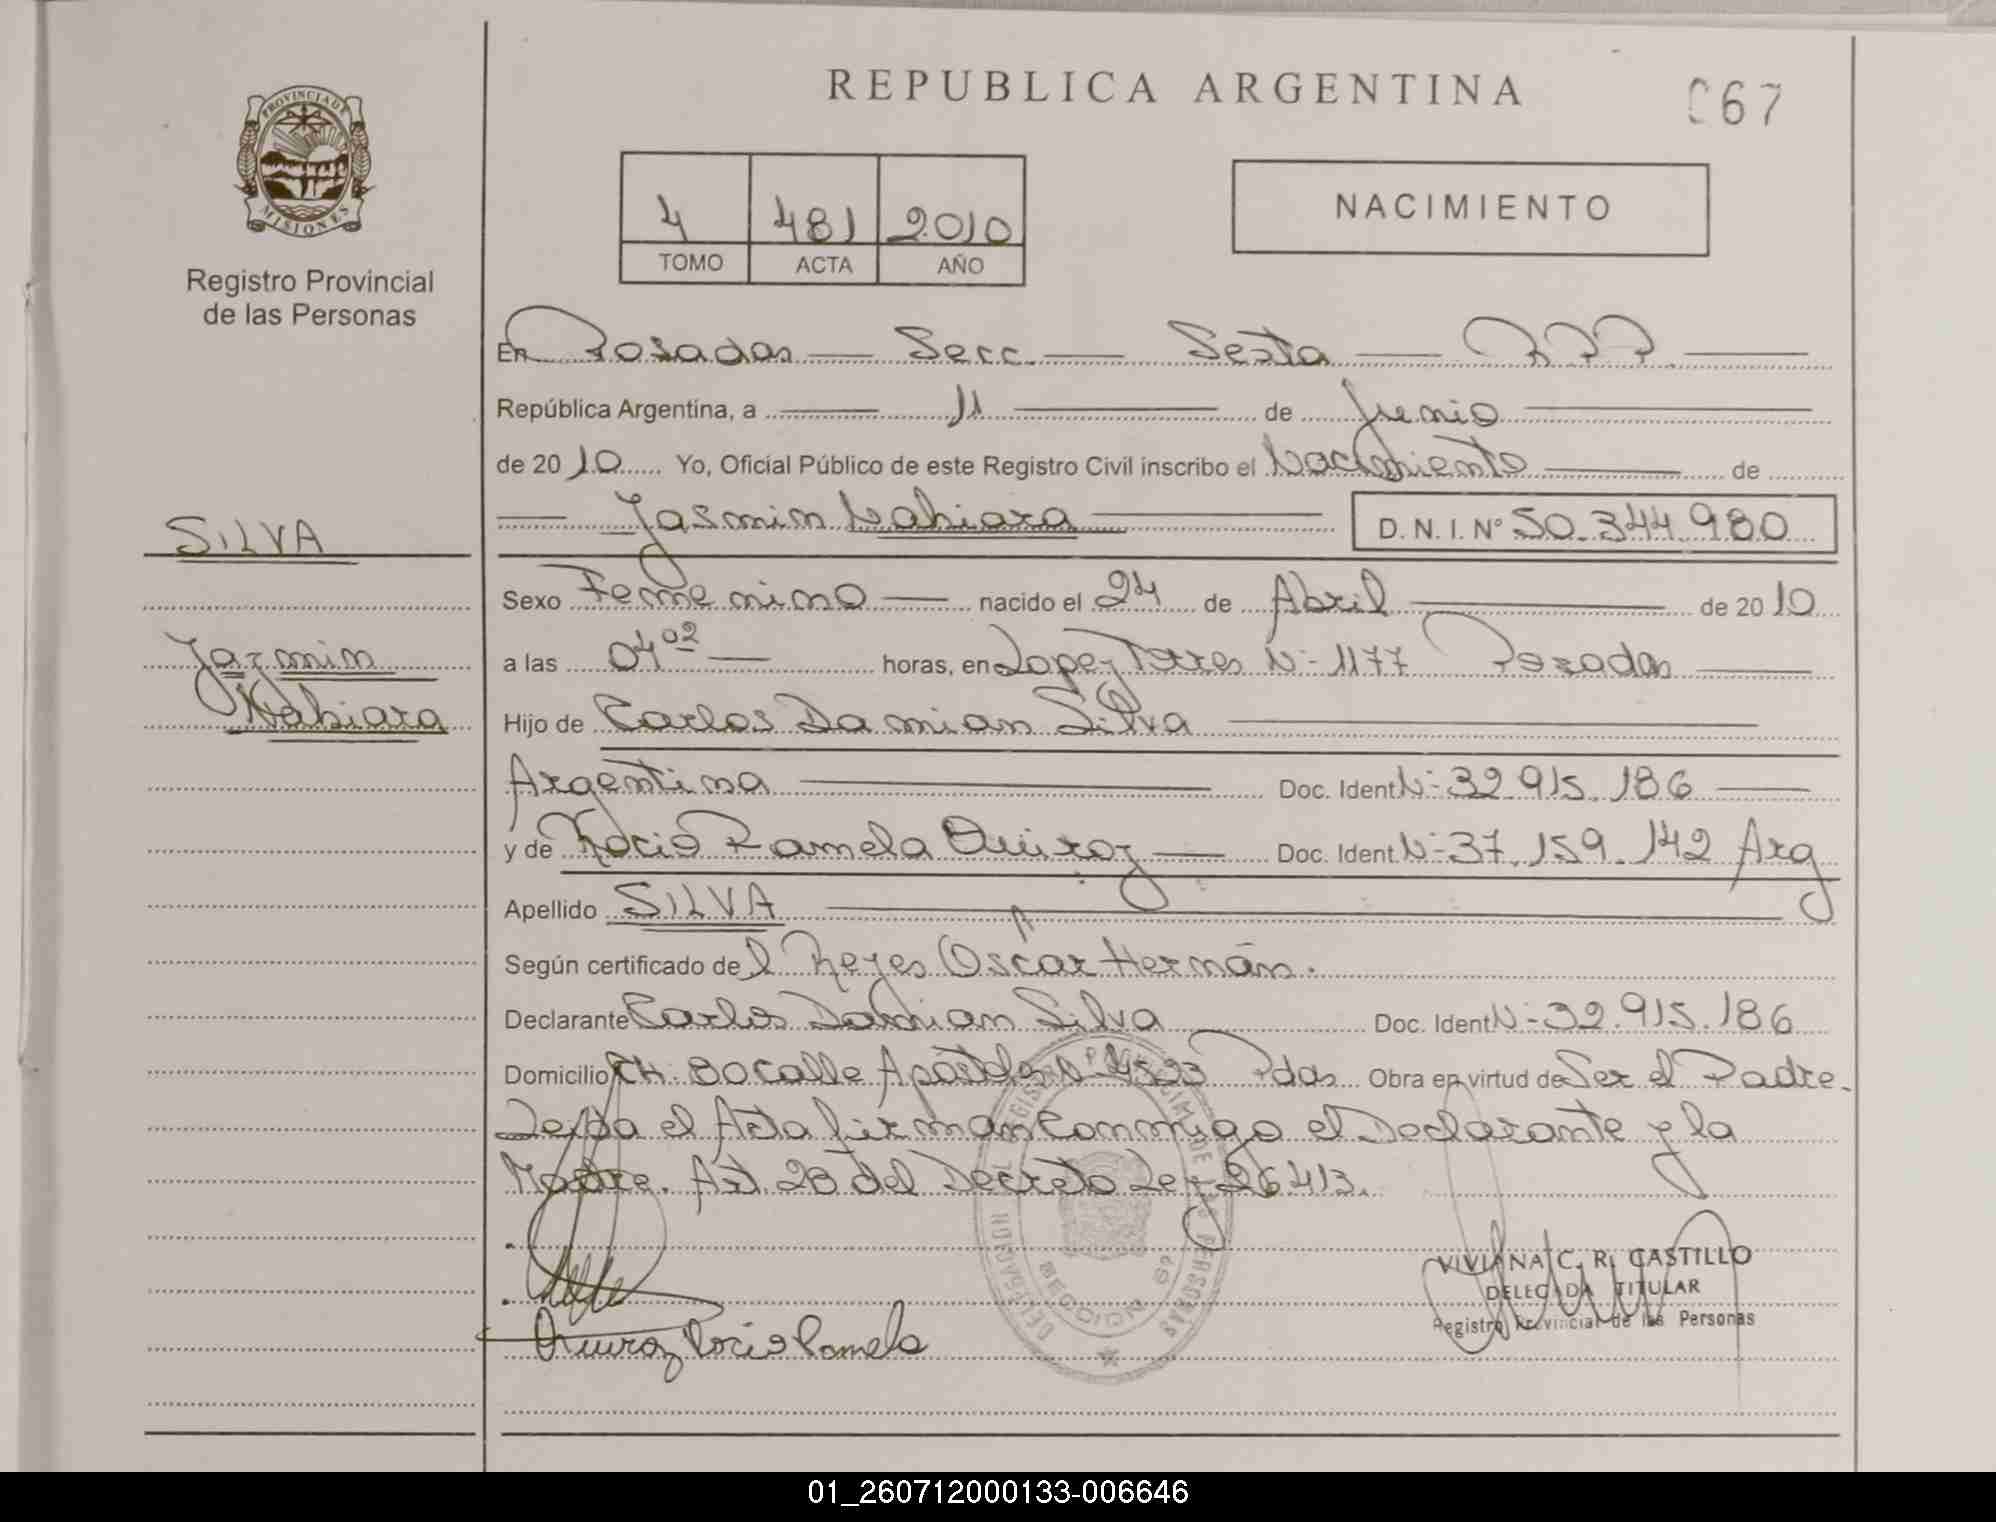 REPUBLICA ARGENTINA
067
PROVINCIA DE MISIONES
Registro Provincial
de las Personas
4 481 2010
TOMO ACTA AÑO
NACIMIENTO
En Posadas — Secc. — Sexta — RPP. —
República Argentina, a — 11 — de Junio —
de 2010 Yo, Oficial Público de este Registro Civil inscribo el Nacimiento — de
— Jasmin Nahiara — D. N. I. Nº 50.344.980
SILVA
Sexo Femenino — nacido el 24 de Abril — de 2010
Jazmin
a las 04 02 — horas, en Lopez Torres Nº 1177 Posadas —
Nahiara
Hijo de Carlos Damian Silva —
Argentina — Doc. Ident Nº 32.915.186 —
y de Rocio Pamela Quiroz — Doc. Ident. Nº 37.159.142 Arg
Apellido SILVA —
Según certificado del Reyes Oscar Hernán.
Declarante Carlos Damian Silva Doc. Ident Nº 32.915.186
Domicilio CH. 80 calle Apóstoles Nº 4523 Pdas Obra en virtud de Ser el Padre.
Leida el Acta firman Conmigo el Declarante y la
Madre. Art. 28 del Decreto Ley 26413.
SECCION 6ª
VIVIANA C. R. CASTILLO
DELEGADA TITULAR
Registro Provincial de las Personas
Quiroz Rocio Pamela
01_260712000133-006646